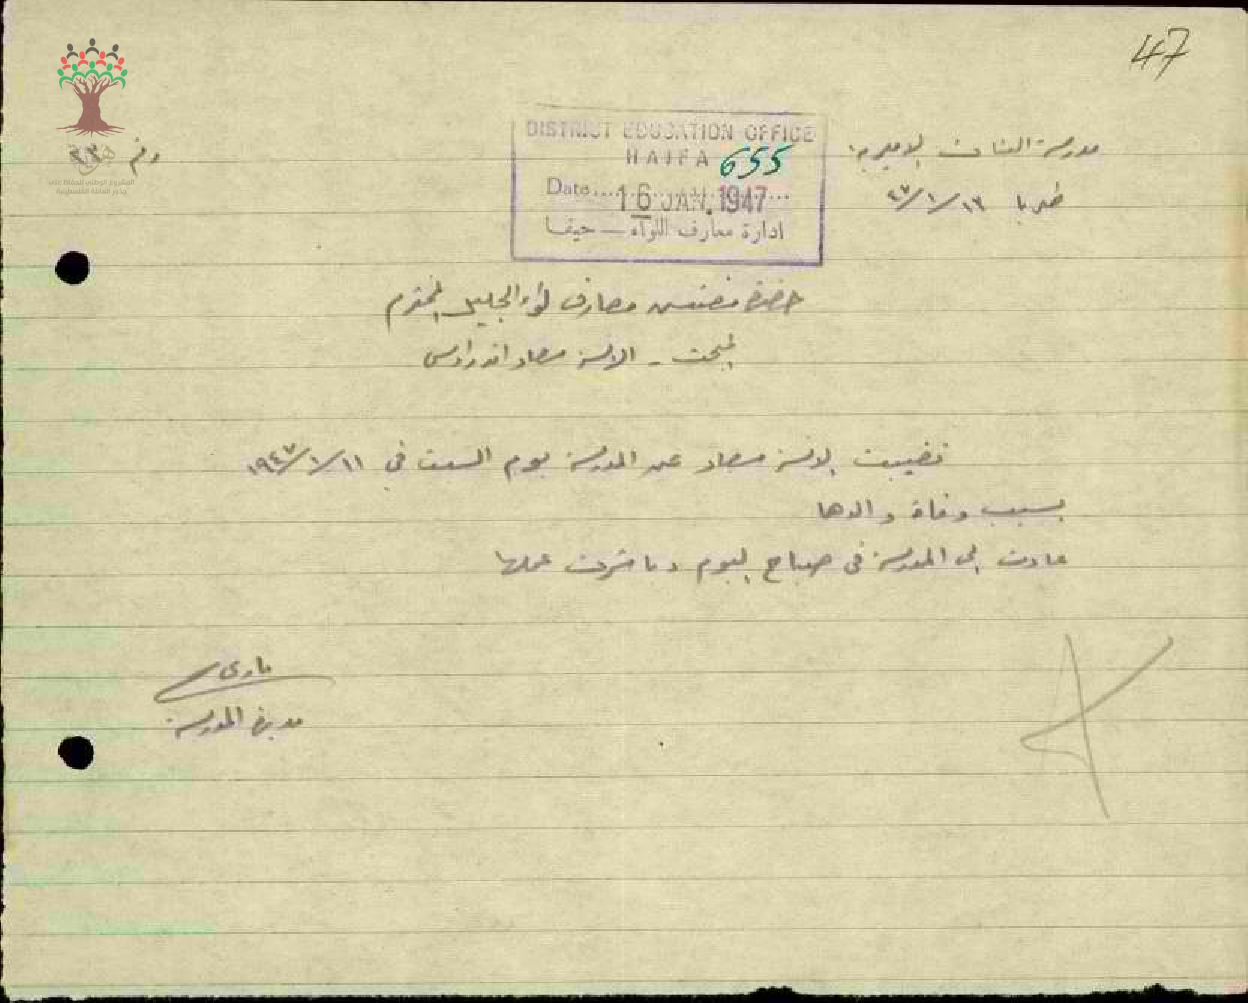 47
مدرسة البنات الاميرية
طبريا ١٣/١/٤٧
رقم
DISTRICT EDUCATION OFFICE
HAIFA 655
Date.... 16 JAN. 1947 ...
ادارة معارف اللواء — حيفا
حضرة مفتش معارف لواء الجليل المحترم
المبحث - الانسة سعاد اندراوس
تغيبت الانسة سعاد عن المدرسة يوم السبت في ١١/١/١٩٤٧
بسبب وفاة والدها
عادت الى المدرسة في صباح اليوم وباشرت عملها
ماري
مديرة المدرسة